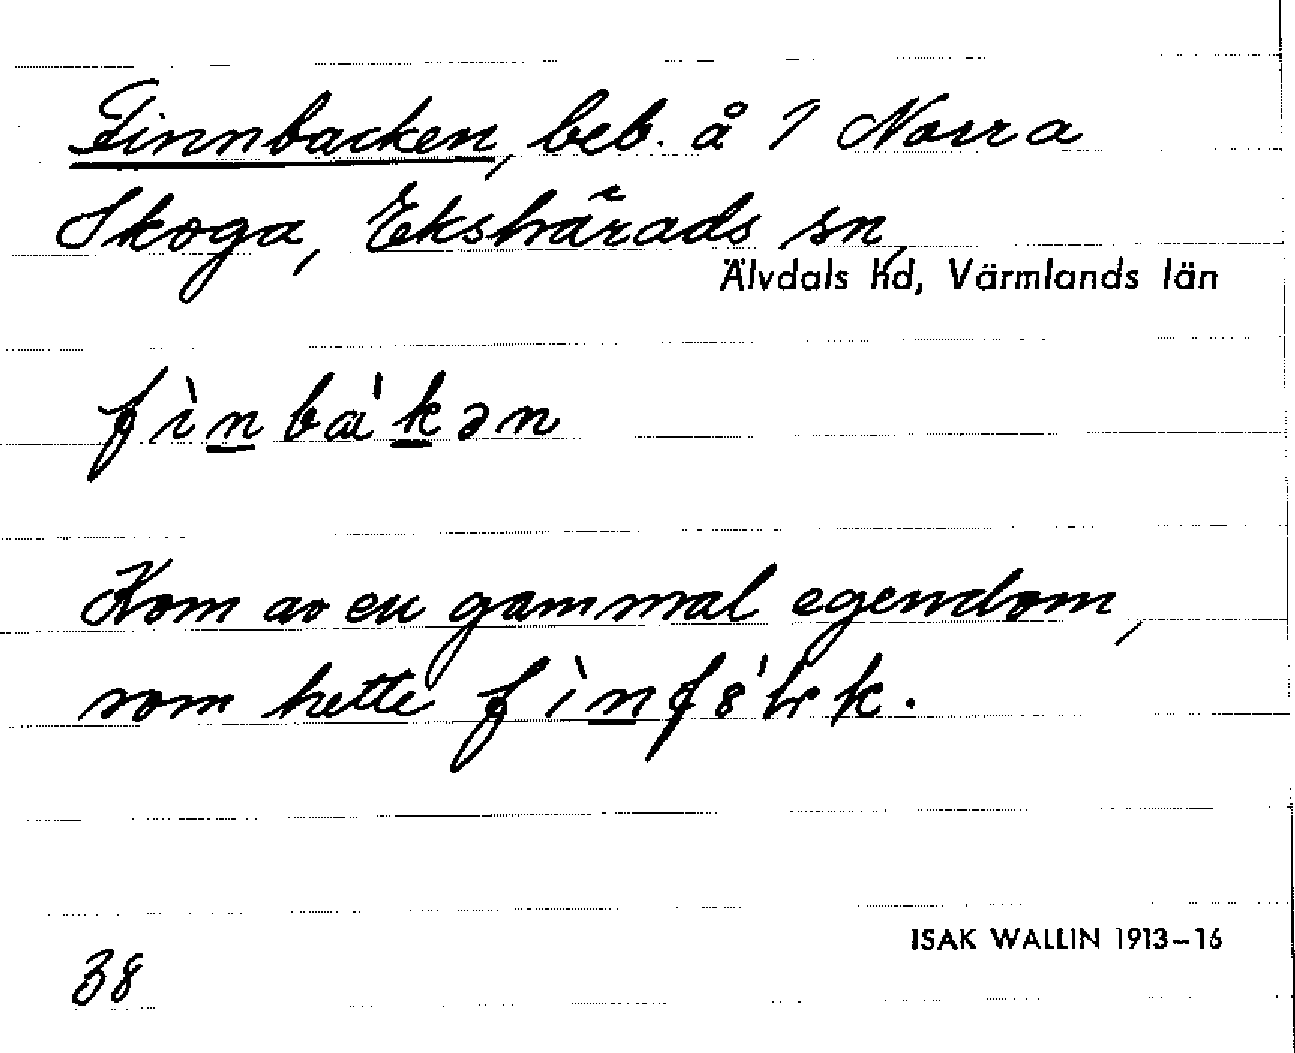 Finnbacken, beb. å 1 Norra
Skoga, Ekshärads sn,
Älvdals hd, Värmlands län
fìnbàkən
Kom av en gammal egendom,
som hette
38
ISAK WALLIN 1913–16